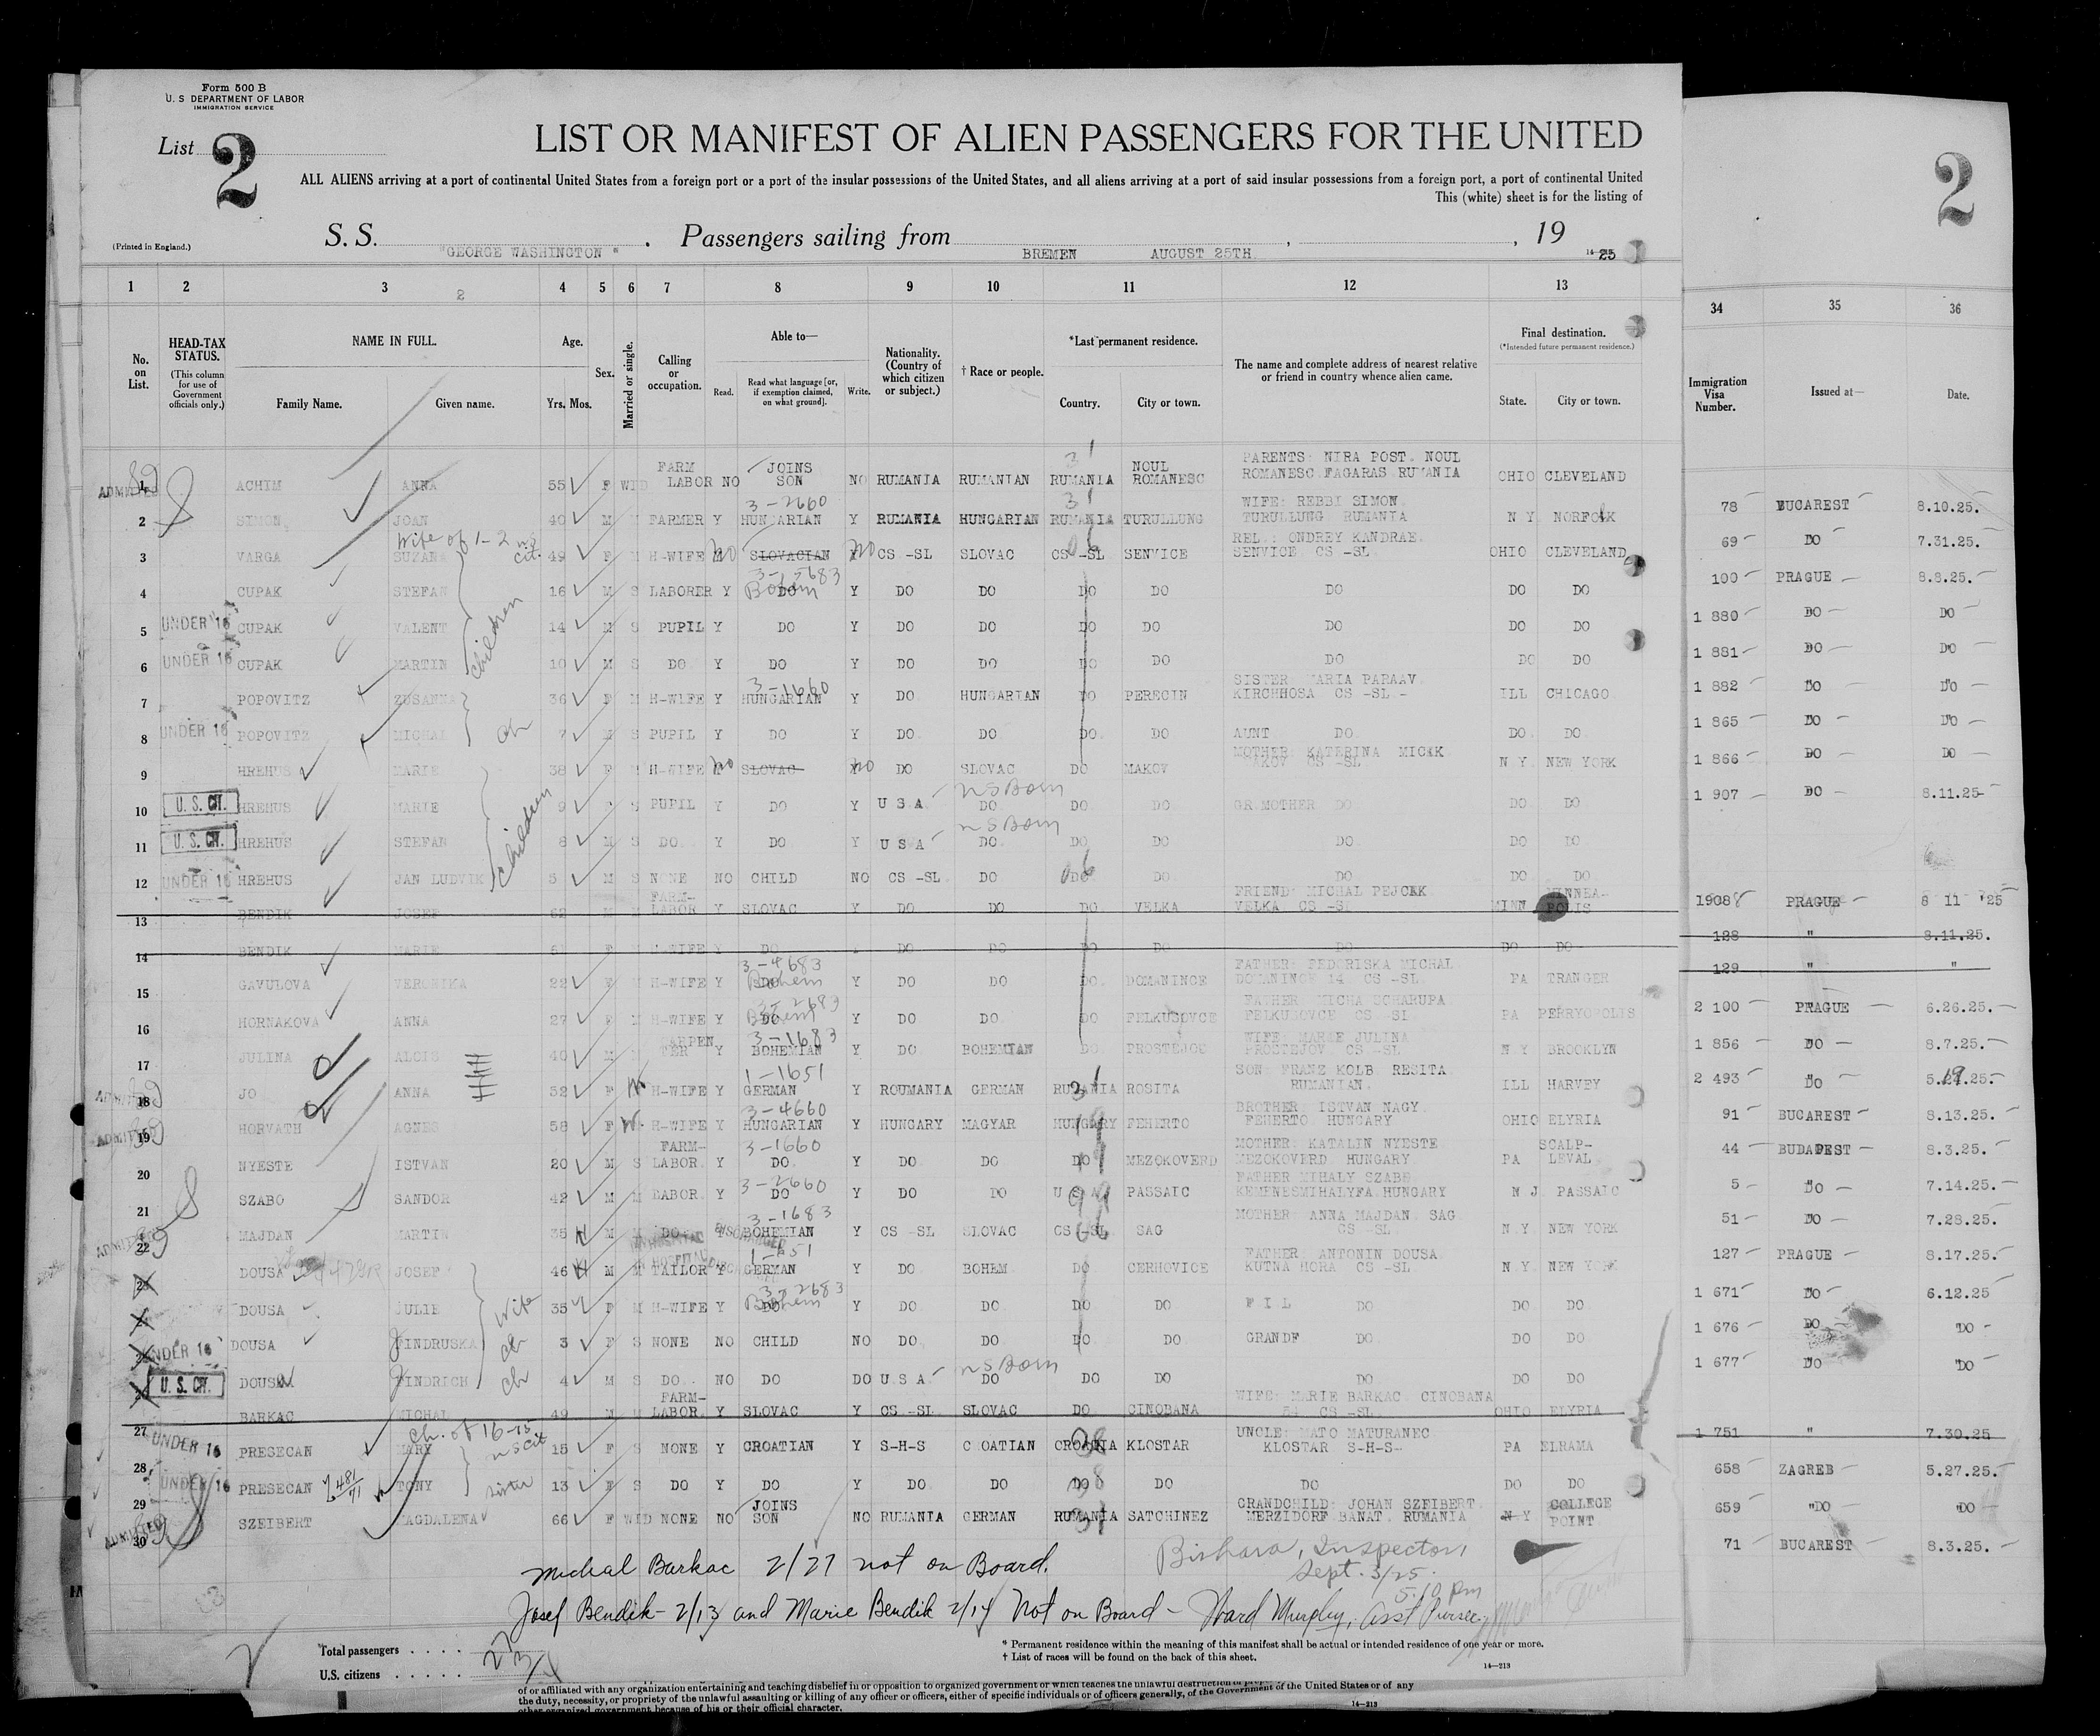 Form 500 B
U. S DEPARTMENT OF LABOR
IMMIGRATION SERVICE
List 2
LIST OR MANIFEST OF ALIEN PASSENGERS FOR THE UNITED
2
ALL ALIENS arriving at a port of continental United States from a foreign port or a port of the insular possessions of the United States, and all aliens arriving at a port of said insular possessions from a foreign port, a port of continental United
This (white) sheet is for the listing of
(Printed in England.)
S. S. "GEORGE WASHINGTON" . Passengers sailing from BREMEN , AUGUST 25TH , 19 25
1 2 3 4 5 6 7 8 9 10 11 12 13 34 35 36
No. on List.
HEAD-TAX STATUS. (This column for use of Government officials only.)
NAME IN FULL. Family Name. Given name.
Age. Yrs. Mos.
Sex.
Married or single.
Calling or occupation.
Able to— Read. Read what language [or, if exemption claimed, on what ground]. Write.
Nationality. (Country of which citizen or subject.)
† Race or people.
*Last permanent residence. Country. City or town.
The name and complete address of nearest relative or friend in country whence alien came.
Final destination. (*Intended future permanent residence.) State. City or town.
Immigration Visa Number.
Issued at—
Date.
ADMITTED 1 ACHIM ANNA 55 F WID FARM LABOR NO JOINS SON NO RUMANIA RUMANIAN RUMANIA NOUL ROMANESC PARENTS: NIRA POST. NOUL ROMANESC FAGARAS RUMANIA OHIO CLEVELAND 78 BUCAREST 8.10.25.
2 SIMON JOAN 40 M M FARMER Y 3-2660 HUNGARIAN Y RUMANIA HUNGARIAN RUMANIA TURULLUNG WIFE: REBBI SIMON TURULLUNG RUMANIA N Y NORFOLK 69 DO 7.31.25.
Wife of 1-2 ns cit.
3 VARGA SUZANA 49 F M H-WIFE NO SLOVACIAN NO CS -SL SLOVAC CS -SL SENVICE REL.: ONDREY KANDRAE SENVICE CS -SL OHIO CLEVELAND 100 PRAGUE 8.8.25.
4 CUPAK STEFAN 16 M S LABORER Y 3-15683 Bohem DO Y DO DO DO DO DO DO DO 1 880 DO DO
UNDER 16 5 CUPAK VALENT 14 M S PUPIL Y DO Y DO DO DO DO DO DO DO 1 881 DO DO
UNDER 16 6 CUPAK MARTIN 10 M S DO Y DO Y DO DO DO DO DO DO DO 1 882 DO DO
children
7 POPOVITZ ZUSANNA 36 F M H-WIFE Y 3-1660 HUNGARIAN Y DO HUNGARIAN DO PERECIN SISTER MARIA PARAAV KIRCHHOSA CS -SL- ILL CHICAGO 1 865 DO DO
UNDER 16 8 POPOVITZ MICHAL 7 M S PUPIL Y DO Y DO DO DO DO AUNT DO DO DO 1 866 DO DO
ch
9 HREHUS MARIE 38 F M H-WIFE NO SLOVAC NO DO SLOVAC DO MAKOV MOTHER: KATERINA MICEK MAKOV CS -SL N Y. NEW YORK 1 907 DO 8.11.25
U. S. CIT. 10 HREHUS MARIE 9 F S PUPIL Y DO Y U S A US Born DO DO DO GR.MOTHER DO DO DO
U. S. CIT. 11 HREHUS STEFAN 8 M S DO Y DO Y U S A US Born DO DO DO DO DO DO
children
UNDER 16 12 HREHUS JAN LUDVIK 5 M S NONE NO CHILD NO CS -SL DO DO DO DO DO DO 1908 PRAGUE 8 11 '25
13 BENDIK JOSEF 62 M M FARM-LABOR Y SLOVAC Y DO DO DO VELKA FRIEND: MICHAL PEJCEK VELKA CS -SL MINN MINNEAPOLIS 128 " 8.11.25.
14 BENDIK MARIE 61 F M H-WIFE Y DO DO DO DO DO DO DO DO 129 " "
15 GAVULOVA VERONIKA 22 F M H-WIFE Y 3-4683 Bohem DO Y DO DO DO DOMANINCE FATHER: FEDORISKA MICHAL DOMANINCE 14 CS -SL PA TRANGER 2 100 PRAGUE 6.26.25.
16 HORNAKOVA ANNA 27 F M H-WIFE Y 3-2683 Bohem DO Y DO DO DO PELKUSOVCE FATHER MICHA SCHARUPA PELKUSOVCE CS -SL PA PERRYOPOLIS 1 856 DO 8.7.25.
17 JULINA ALOIS 40 M M CARPENTER Y 3-1683 BOHEMIAN Y DO BOHEMIAN DO PROSTEJOC WIFE: MARIE JULINA PROSTEJOV CS -SL N Y BROOKLYN 2 493 DO 5.19.25.
ADMITTED 18 JO ANNA 52 F W H-WIFE Y 1-1651 GERMAN Y ROUMANIA GERMAN RUMANIA ROSITA SON: FRANZ KOLB RESITA RUMANIAN. ILL HARVEY 91 BUCAREST 8.13.25.
ADMITTED 19 HORVATH AGNES 58 F W H-WIFE Y 3-4660 HUNGARIAN Y HUNGARY MAGYAR HUNGARY FEHERTO BROTHER: ISTVAN NAGY FEHERTO HUNGARY OHIO ELYRIA 44 BUDAPEST 8.3.25.
20 NYESTE ISTVAN 20 M S FARM-LABOR. Y 3-1660 DO Y DO DO DO MEZOKOVERD MOTHER: KATALIN NYESTE MEZOKOVERD HUNGARY PA SCALP-LEVAL 5 DO 7.14.25.
21 SZABO SANDOR 42 M M LABOR. Y 3-2660 DO Y DO DO U S A PASSAIC FATHER MIHALY SZABE KEMENESMIHALYFA.HUNGARY N J PASSAIC 51 DO 7.28.25.
ADMITTED 22 MAJDAN MARTIN 35 M M DO Y 3-1683 BOHEMIAN Y CS -SL SLOVAC CS -SL SAG MOTHER: ANNA MAJDAN SAG CS -SL N.Y. NEW YORK 127 PRAGUE 8.17.25.
IN HOSPITAL DISCHARGED
DOUSA JOSEF 46 M M TAILOR Y 1-1651 GERMAN Y DO BOHEM DO CERHOVICE FATHER: ANTONIN DOUSA KUTNA HORA CS -SL N.Y. NEW YORK 1 671 DO 6.12.25
DOUSA JULIE 35 F M H-WIFE Y 3-2683 Bohem DO Y DO DO DO DO F I L DO DO DO 1 676 DO DO
Wife
UNDER 16 DOUSA JINDRUSKA 3 F S NONE NO CHILD NO DO DO DO DO GRANDF DO DO DO 1 677 DO DO
ch
U. S. CIT. DOUSA JINDRICH 4 M S DO NO DO DO U S A US Born DO DO DO DO DO DO
ch
27 BARKAC MICHAL 49 M M FARM-LABOR. Y SLOVAC Y CS -SL SLOVAC DO CINOBANA WIFE: MARIE BARKAC CINOBANA 54 CS -SL OHIO ELYRIA 1 751 " 7.30.25
ch. of 16-15 us cit
UNDER 16 28 PRESECAN MARY 15 F S NONE Y CROATIAN Y S-H-S CROATIAN CROATIA KLOSTAR UNCLE: MATO MATURANEC KLOSTAR S-H-S- PA ELRAMA 658 ZAGREB 5.27.25.
UNDER 16 29 PRESECAN TONY sister 13 F S DO Y DO Y DO DO DO DO DO DO DO 659 DO DO
ADMITTED 30 SZEIBERT MAGDALENA 66 F WID NONE NO JOINS SON NO RUMANIA GERMAN RUMANIA SATCHINEZ GRANDCHILD: JOHAN SZEIBERT MERZIDORF BANAT RUMANIA N Y COLLEGE POINT. 71 BUCAREST 8.3.25.
Michal Barkac 2/27 not on Board.
Bishara, Inspector,
Sept. 3/25.
5.10 pm
Josef Bendik - 2/13 and Marie Bendik 2/14 Not on Board - Ward Murphy, Asst Purser.
Total passengers . . . . 27
U.S. citizens . . . . . 3
* Permanent residence within the meaning of this manifest shall be actual or intended residence of one year or more.
† List of races will be found on the back of this sheet.
14—213
of or affiliated with any organization entertaining and teaching disbelief in or opposition to organized government or which teaches the unlawful destruction of
the duty, necessity, or propriety of the unlawful assaulting or killing of any officer or officers, either of specific individuals or of officers generally, of the Government of the United States or of any
other organized government because of his or their official character.
14—213